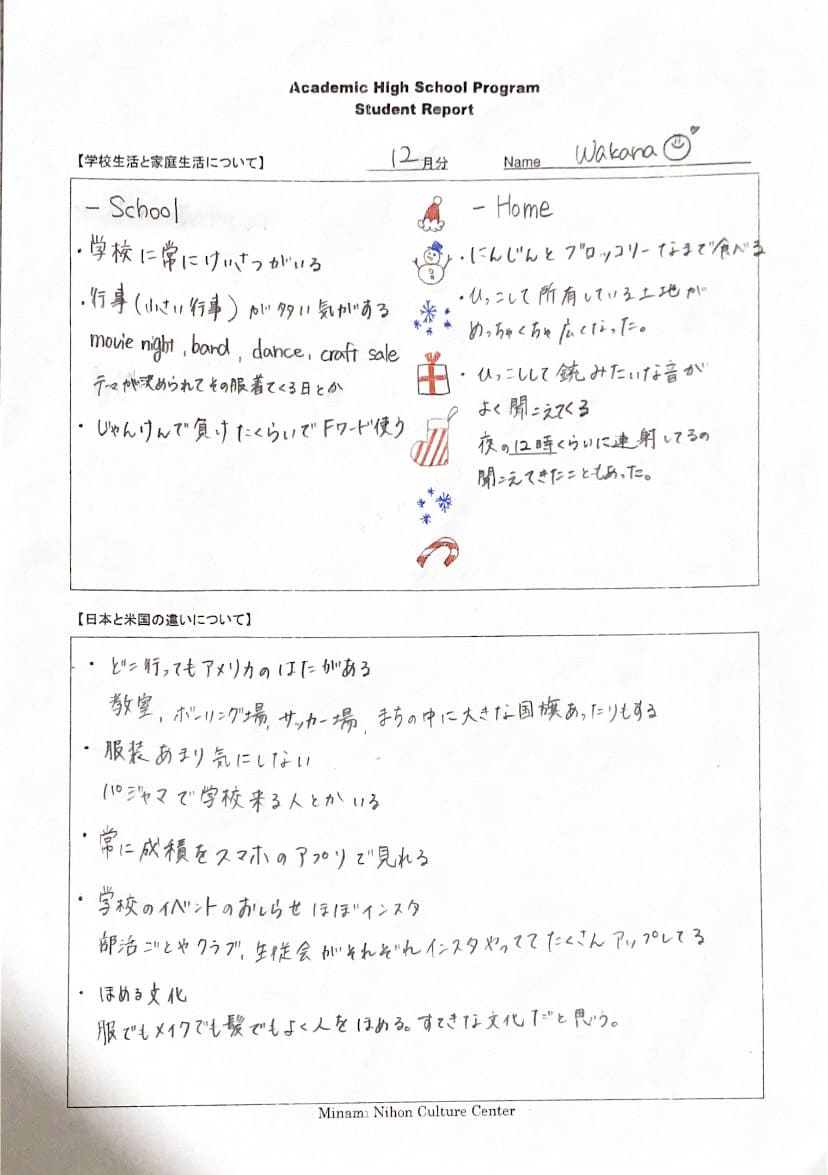 Academic High School Program
Student Report
【学校生活と家庭生活について】
12月分
Name Wakana
- School
・学校に常にけいさつがいる
・行事(小さい行事)が多い気がする
movie night, band, dance, craft sale
テーマが決められてその服着てくる日とか
・じゃんけんで負けたくらいでFワード使う
- Home
・にんじんとブロッコリーなまで食べる
・ひっこして所有している土地が
めっちゃくちゃ広くなった。
・ひっこしして銃みたいな音が
よく聞こえてくる
夜の12時くらいに連射してるの
聞こえてきたこともあった。
【日本と米国の違いについて】
・どこ行ってもアメリカのはたがある
教室、ボーリング場、サッカー場、まちの中に大きな国旗あったりもする
・服装あまり気にしない
パジャマで学校来る人とかいる
・常に成績をスマホのアプリで見れる
・学校のイベントのおしらせほぼインスタ
部活ごとやクラブ、生徒会がそれぞれインスタやっててたくさんアップしてる
・ほめる文化
服でもメイクでも髪でもよく人をほめる。すてきな文化だと思う。
Minami Nihon Culture Center